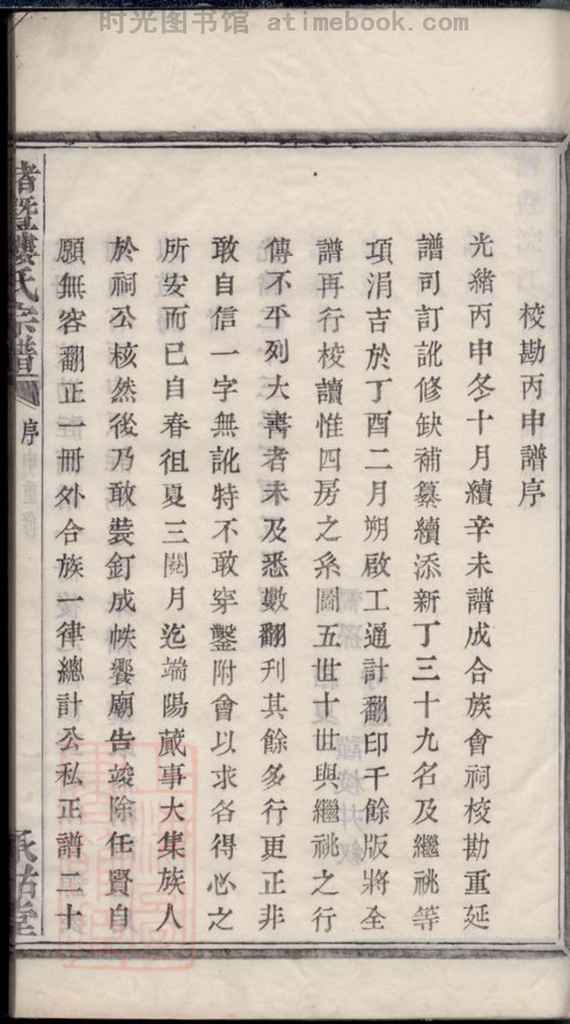 时光图书馆 atimebook.com
校勘丙申譜序
光緒丙申冬十月續辛未譜成合族會祠校勘重延
譜司訂訛修缺補纂續添新丁三十九名及繼祧等
項涓吉於丁酉二月朔啟工通計翻印千餘版將全
譜再行校讀惟四房之系圖五世十世與繼祧之行
傳不平列大書者未及悉數翻刊其餘多行更正非
敢自信一字無訛特不敢穿鑿附會以求各得心之
所安而已自春徂夏三閱月迄端陽蕆事大集族人
於祠公核然後乃敢裝釘成帙饗廟告竣除任賢自
願無容翻正一冊外合族一律總計公私正譜二十
諸暨 氏宗譜
序
承 堂